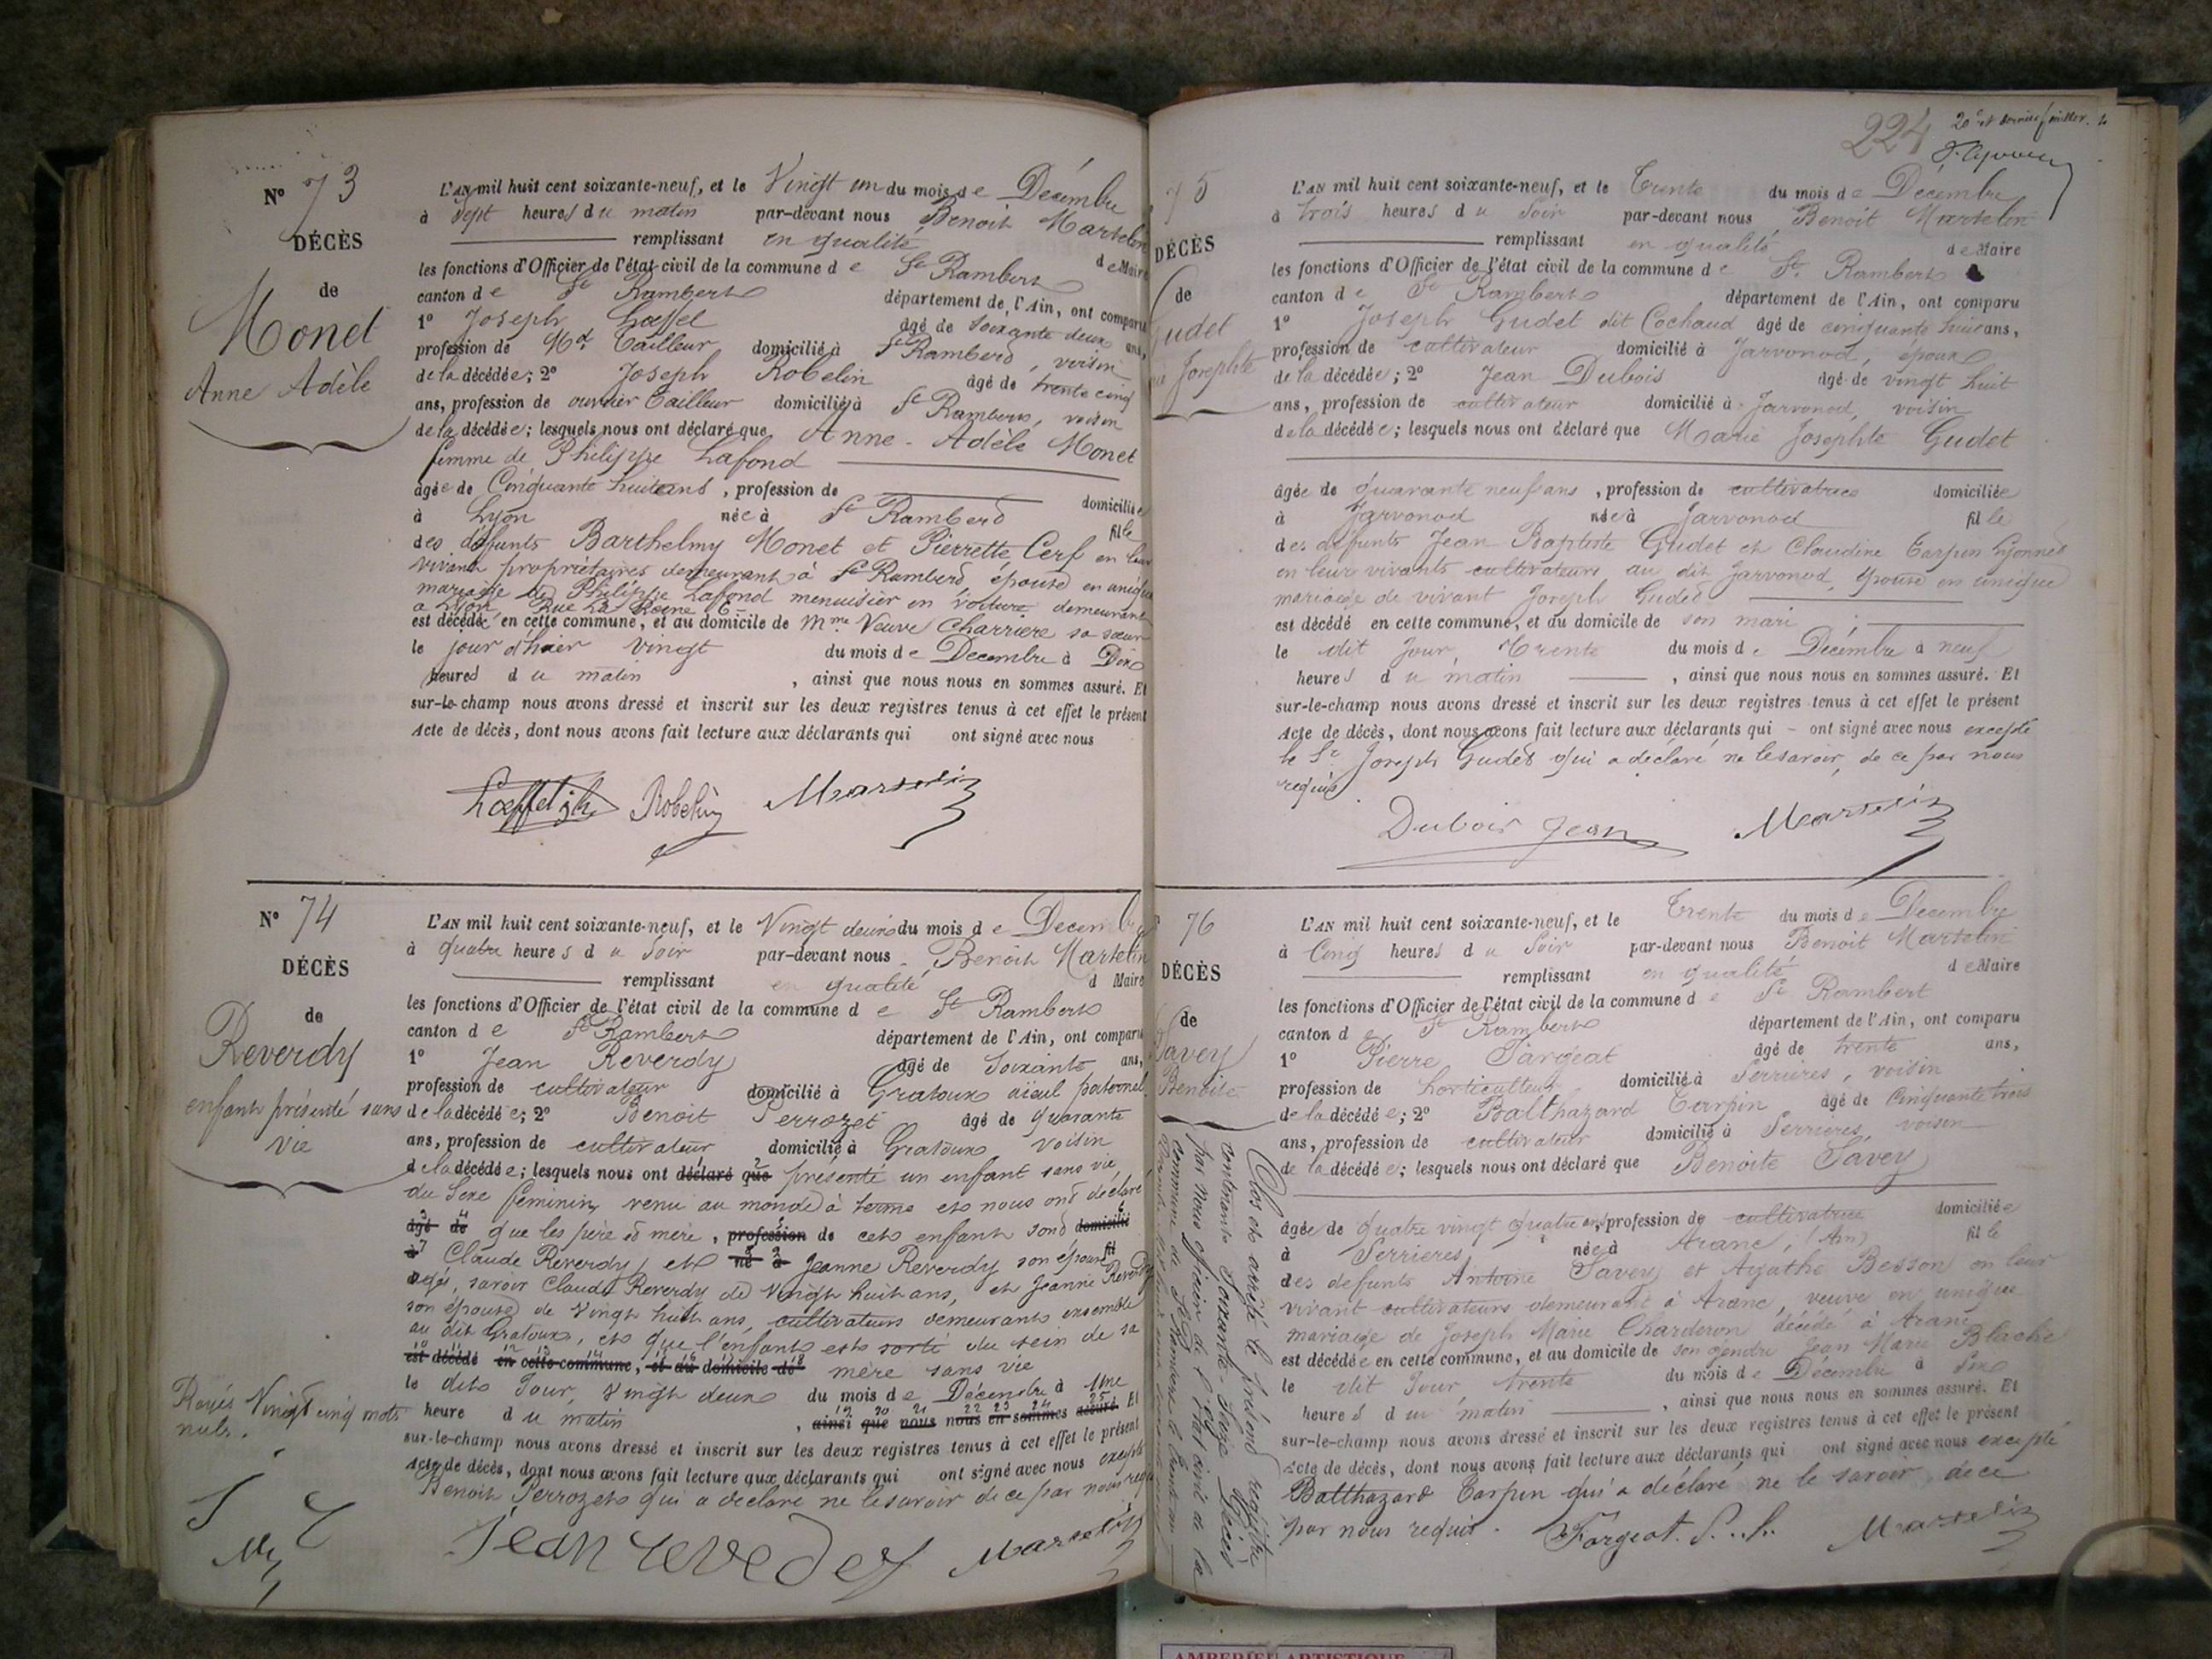 N° 73
DÉCÈS
de
Monet
Anne Adèle
L'AN mil huit cent soixante-neuf, et le Vingt un du mois de Décembre
à Sept heures du matin par-devant nous Benoit Martelin
remplissant en qualité de Maire
les fonctions d'Officier de l'état civil de la commune de St Rambert
canton de St Rambert département de l'Ain, ont comparu
1° Joseph Lœffel âgé de soixante deux ans,
profession de Md Tailleur domicilié à St Rambert, voisin
de la décédée; 2° Joseph Robelin âgé de trente cinq
ans, profession de ouvrier Tailleur domicilié à St Rambert, voisin
de la décédée; lesquels nous ont déclaré que Anne-Adèle Monet
femme de Philippe Lafond
âgée de Cinquante huit ans, profession de domiciliée
à Lyon née à St Rambert fille
des défunts Barthelmy Monet et Pierrette Cerf en leur
vivant propriétaires demeurant à St Rambert, épouse en unique
mariage de Philippe Lafond menuisier en voiture demeurant
à Lyon, Rue La Reine 6
est décédée en cette commune, et au domicile de Mme Veuve Charriere sa sœur
le jour d'hier vingt du mois de Décembre à Dix
heures du matin, ainsi que nous nous en sommes assuré. Et
sur-le-champ nous avons dressé et inscrit sur les deux registres tenus à cet effet le présent
Acte de décès, dont nous avons fait lecture aux déclarants qui ont signé avec nous
Lœffel jh Robelin Martelin
N° 74
DÉCÈS
de
Reverdy
enfant présenté sans
vie
L'AN mil huit cent soixante-neuf, et le Vingt deux du mois de Décembre
à quatre heures du soir par-devant nous Benoit Martelin
remplissant en qualité d Maire
les fonctions d'Officier de l'état civil de la commune de St Rambert
canton de St Rambert département de l'Ain, ont comparu
1° Jean Reverdy âgé de soixante ans,
profession de cultivateur domicilié à Gratoux aïeul paternel
de la décédée; 2° Benoit Perrozet âgé de quarante
ans, profession de cultivateur domicilié à Gratoux voisin
de la décédée; lesquels nous ont déclaré que présenté un enfant sans vie
du sexe féminin, venu au monde à terme et nous ont déclaré
âgé de que les père et mère, profession de cet enfant sont domicilié
à Claude Reverdy, et né à Jeanne Reverdy son épouse fil
âgés, savoir Claude Reverdy de Vingt huit ans, et Jeanne Reverdy
son épouse de Vingt huit ans, cultivateurs demeurants ensemble
au dit Gratoux, et que l'enfant est sorti du sein de sa
est décédé en cette commune, et au domicile de mère sans vie
le dit Jour, Vingt deux du mois de Décembre à Une
heure du matin, ainsi que nous nous en sommes assuré. Et
sur-le-champ nous avons dressé et inscrit sur les deux registres tenus à cet effet le présent
Acte de décès, dont nous avons fait lecture aux déclarants qui ont signé avec nous excepté
Benoit Perrozet qui a déclaré ne le savoir de ce par nous requis
Rayés Vingt cinq mots
nuls.
Jean revedey Martelin
224 20e et dernier feuillet.
75
DÉCÈS
de
Gudet
Josephte
L'AN mil huit cent soixante-neuf, et le Trente du mois de Décembre
à trois heures du soir par-devant nous Benoit Martelin
remplissant en qualité de Maire
les fonctions d'Officier de l'état civil de la commune de St. Rambert
canton de St Rambert département de l'Ain, ont comparu
1° Joseph Gudet dit Cochaud âgé de cinquante huit ans,
profession de cultivateur domicilié à Javornod, époux
de la décédée; 2° Jean Dubois âgé de vingt huit
ans, profession de cultivateur domicilié à Javornod, voisin
de la décédée; lesquels nous ont déclaré que Marie Josephte Gudet
âgée de quarante neuf ans, profession de cultivatrice domiciliée
à Jarvonod née à Jarvonod fille
des defunts Jean Baptiste Gudet et Claudine Tarpin Lyonnet
en leur vivants cultivateurs au dit Jarvonod, épouse en unique
mariage de vivant Joseph Gudet
est décédé en cette commune, et au domicile de son mari
le dit Jour, Trente du mois de Décembre à neuf
heures du matin, ainsi que nous nous en sommes assuré. Et
sur-le-champ nous avons dressé et inscrit sur les deux registres tenus à cet effet le présent
Acte de décès, dont nous avons fait lecture aux déclarants qui - ont signé avec nous excepté
le Sr. Joseph Gudet qui a déclaré ne le savoir, de ce par nous
requis
Dubois Jean Martelin
76
DÉCÈS
de
Savey
Benoite
L'AN mil huit cent soixante-neuf, et le Trente du mois de Décembre
à Cinq heures du soir par-devant nous Benoit Martelin
remplissant en qualité de Maire
les fonctions d'Officier de l'état civil de la commune de St Rambert
canton de St Rambert département de l'Ain, ont comparu
1° Pierre Fargeat âgé de trente ans,
profession de horticulteur domicilié à Serrieres, voisin
de la décédée; 2° Balthazard Tarpin âgé de Cinquante trois
ans, profession de cultivateur domicilié à Serrieres, voisin
de la décédée; lesquels nous ont déclaré que Benoite Savey
âgée de quatre vingt quatre ans profession de cultivatrice domiciliée
à Serrieres, née à Aranc, (Ain) fille
des defunts Antoine Savey et Agathe Besson en leur
vivant cultivateurs demeurant à Aranc, veuve en unique
mariage de Joseph Marie Charderon décédé à Aranc
est décédée en cette commune, et au domicile de son gendre Jean Marie Blache
le dit Jour, trente du mois de Décembre à Six
heures du matin, ainsi que nous nous en sommes assuré. Et
sur-le-champ nous avons dressé et inscrit sur les deux registres tenus à cet effet le présent
Acte de décès, dont nous avons fait lecture aux déclarants qui ont signé avec nous excepté
Balthazard Tarpin qui a déclaré ne le savoir de ce
par nous requis. Fargeat. Martelin
Clos et arrêté le présent registre
contenant Soixante-Seize Décès
par nous officier de l'Etat civil de la
commune de St Rambert le trente un
AMBERIEU ARTISTIQUE